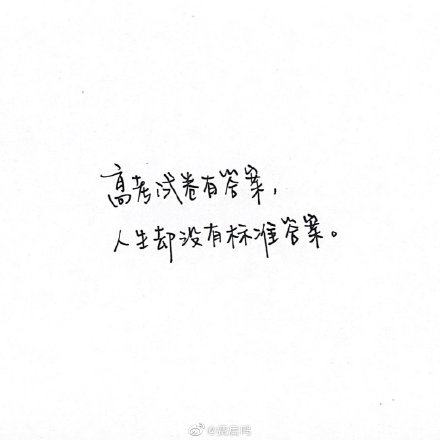 高考试卷有答案，
人生却没有标准答案。